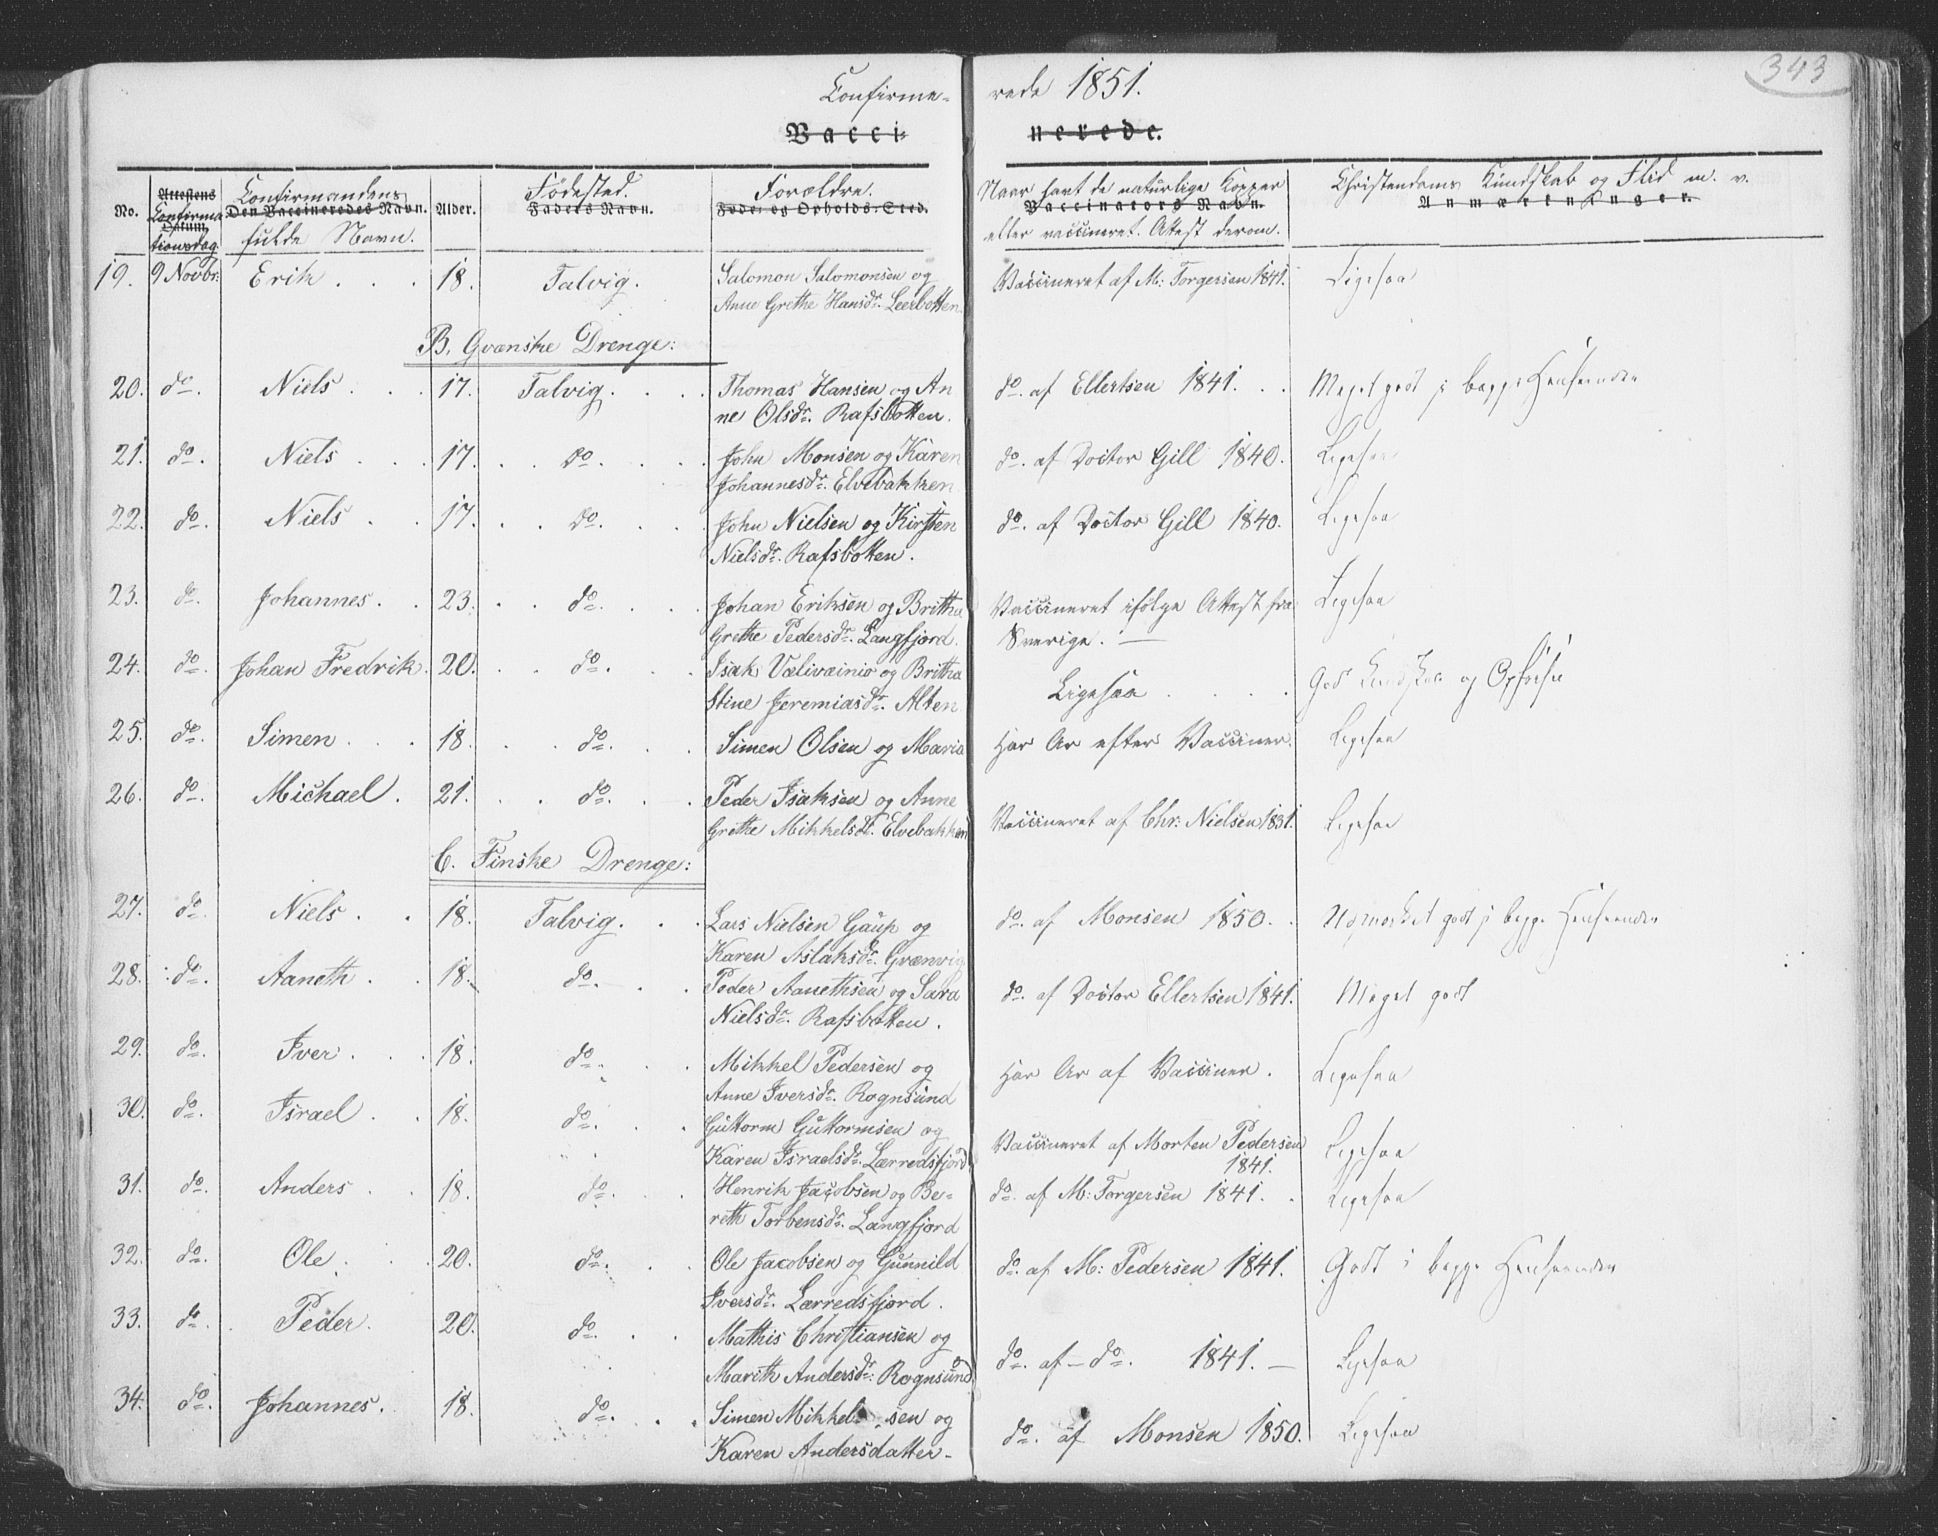 343
Confirme- rede 1851.
Vacci- nerede.
No. Attestens Datum. Confirmationsdag. Confirmandens fulde Navn. Den Vaccineredes Navn. Alder. Fødested. Faders Navn. Forældre. Føde- og Opholds-Sted. Naar havt de naturlige Kopper eller vaccineret. Attest derom. Vaccinators Navn. Christendoms Kundskab og Flid m. v. Anmærkninger.
19. 9 Novbr. Erik . . . 18. Talvig. Salomon Salomonsen og Vaccineret af M: Torgersen 1841. Ligesaa
Anne Grethe Hansdr. Leerbotten.
B. Qvænske Drenge:
20. do. Niels . . . 17. Talvig. . . . Thomas Hansen og An do. af Ellertsen 1841. . . Meget godt i begge Henseender
ne Olsdr. Rafsbotten.
21. do. Niels . . . 17. . . do. . . . John Monsen og Karen do. af Doctor Gill 1840. Ligesaa
Johannesdr. Elvebakken
22. do. Niels . . 17. . . do. . . . John Nielsen og Kirsten do. af Doctor Gill 1840. Ligesaa
Nielsdr. Rafsbotten.
23. do. Johannes. . 23. . . do. . . . Johan Eriksen og Britha Vaccineret ifølge Attest fra Ligesaa
Grethe Pedersdr. Langfjord. Sverige. —
24. do. Johan Fredrik. 20. . . do. . . Isak Vælivainio og Britha Ligesaa . . . . God Kundskab og Opførsel
Stine Jeremiasdr. Alten
25. do. Simen . . . 18. . . do. . . Simen Olsen og Maria Har Ar efter Vacciner. Ligesaa
26. do. Michael . 21. . . do. . . Peder Isaksen og Anne Vaccineret af Chr: Nielsen 1831. Ligesaa
Grethe Mikkelsdr. Elvebakken
C. Finske Drenge:
27. do. Niels . . 18. Talvig. . . Lars Nielsen Gaup og do. af Monsen 1850. . Udmærket godt i begge Henseender
Karen Aslaksdr. Qvænvig
28. do. Aaneth . 18. do. . . Peder Aanethsen og Sara do. af Doctor Ellertsen 1841. Meget godt
Nielsdr. Rafsbotten.
29. do. Iver . . . 18. do. . . Mikkel Pedersen og Har Ar af Vacciner. Ligesaa
Anne Iversdr. Rognsund
30. do. Israel . . 18. do. . . Guttorm Guttormsen og Vaccineret af Morten Pedersen 1841. Ligesaa
Karen Israelsdr. Lærredsfjord
31. do. Anders . . 18. do. . . Henrik Jacobsen og Be- do. af M: Torgersen 1841. . Ligesaa
reth Torbensdr. Langfjord
32. do. Ole . . . 20. do. . . Ole Jacobsen og Gunnild do. af M: Pedersen 1841. Godt i begge Henseender
Iversdr. Lærredsfjord.
33. do. Peder. 20. do. . . Mathis Christiansen og do. af — do. 1841. — Ligesaa
Marith Andersdr. Rognsund
34. do. Johannes. 18. do. . . . Simen Mikkelsen og do. af Monsen 1850. Ligesaa
Karen Andersdatter -